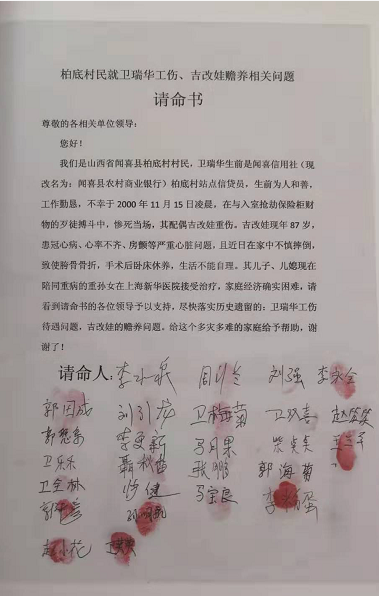 柏底村民就卫瑞华工伤、吉改娃赡养相关问题
请命书
尊敬的各相关单位领导:
您好!
我们是山西省闻喜县柏底村村民，卫瑞华生前是闻喜信用社(现
改名为：闻喜县农村商业银行)柏底村站点信贷员，生前为人和善，
工作勤恳，不幸于 2000 年 11 月 15 日凌晨，在与入室抢劫保险柜财
物的歹徒搏斗中，惨死当场，其配偶吉改娃重伤。吉改娃现年 87 岁，
患冠心病、心率不齐、房颤等严重心脏问题，且近日在家中不慎摔倒，
致使胯骨骨折，手术后卧床休养，生活不能自理。其儿子、儿媳现在
陪同重病的重孙女在上海新华医院接受治疗，家庭经济确实困难，请
看到请命书的各位领导予以支持，尽快落实历史遗留的：卫瑞华工伤
待遇问题，吉改娃的赡养问题。给这个多灾多难的家庭给予帮助，谢
谢了!
请命人: 刘强
郭因成
张鹏 郭海菊
马宗良
赵小花